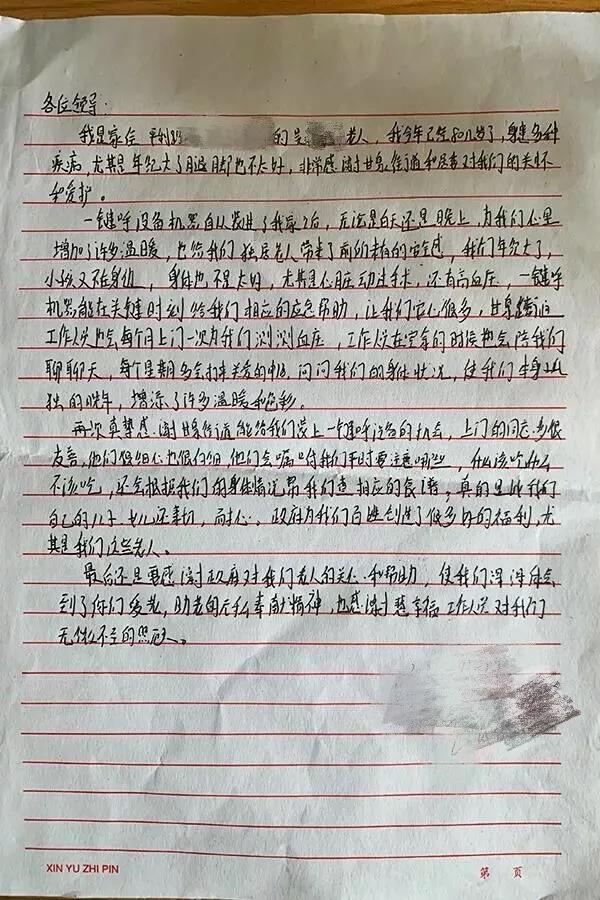 各位领导:
我是家住平利路 的吴 老人,我今年已经80几岁了,身患多种
疾病,尤其是年纪大了腿脚也不太好,非常感谢甘泉街道和居委对我们的关怀
和爱护。
一键呼设备机器自从装进了我家之后,无论是白天还是晚上,为我们心里
增加了许多温暖,也给我们独居老人带来了前所未有的安全感,我们年纪大了,
小孩又不在身边,身体也不是太好,尤其是心脏动过手术,还有高血压,一键呼
机器能在关键时刻给我们相应的应急帮助,让我们安心很多,甘泉街道
工作人员也会每个月上门一次为我们测测血压,工作人员在空余的时候都会陪我们
聊聊天,每个星期多会打来关爱的电话,问问我们的身体状况,使我们本身孤
独的晚年,增添了许多温暖和色彩。
再次真挚感谢甘泉街道能给我们装上一键呼设备的机会,上门的同志多很
友善,他们很细心也很仔细,他们会嘱咐我们平时要注意哪些,什么该吃什么
不该吃,还会根据我们的身体情况帮我们查相应的食谱。真的是比我们
自己的儿子、女儿还亲切,耐心。政府为我们百姓创造了很多好的福利,尤
其是我们这些老人。
最后还是要感谢政府对我们老人的关心和帮助,使我们深深体会
到了你们爱老,助老的无私奉献精神,也感谢慧享福工作人员对我们
无微不至的照顾。
XIN YU ZHI PIN
第 页